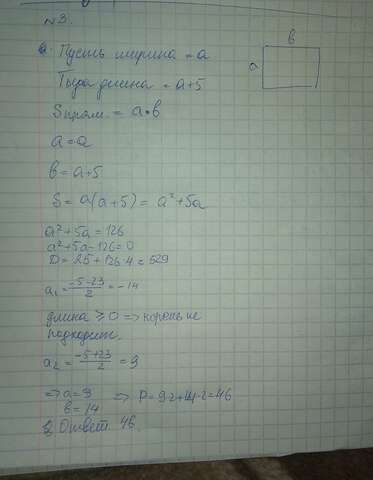 №3.
Пусть ширина = a
b
Тогда длина = a+5
a
Sпрям. = a•b
a=a
b=a+5
S= a(a+5)= a²+5a
a²+5a=126
a²+5a-126=0
D=25+126·4=529
a₁=(-5-23)/2=-14
длина ≥ 0 ⇒ корень не
подходит.
a₂=(-5+23)/2=9
⇒ a=9 ⇒ P=9·2+14·2=46
b=14
Ответ 46.